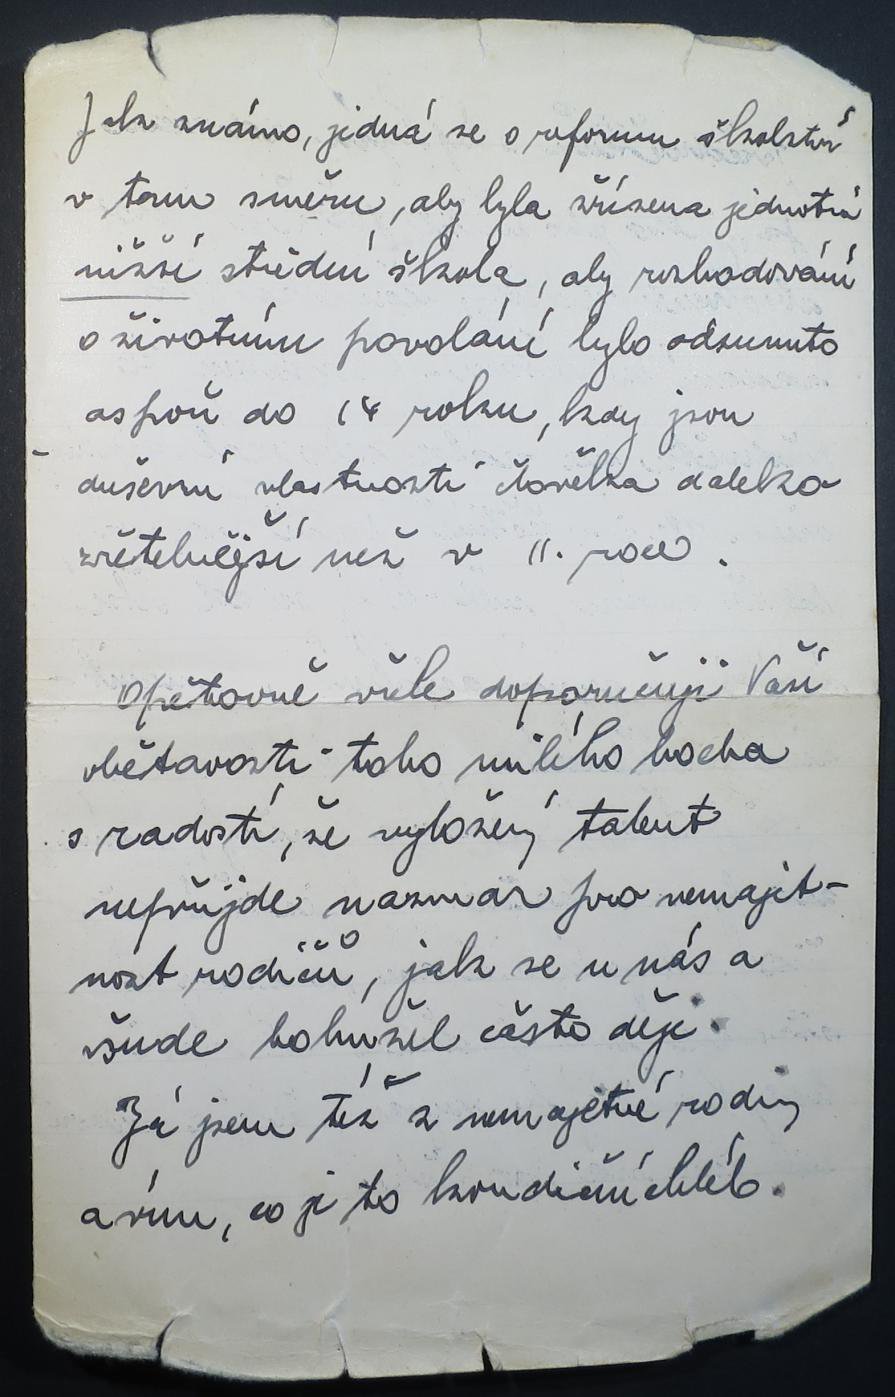 Jak známo, jedná se o reformu školství
v tom směru, aby byla zřízena jednotná
nižší střední škola, aby rozhodování
o životním povolání bylo odsunuto
aspoň do 14 roku, kdy jsou
duševní vlastnosti člověka daleko
zřetelnější než v 11. roce.
Opětovně vřele doporučuji Vaší
obětavosti toho milého hocha
s radostí, že vyložený talent
nepřijde nazmar pro nemajet-
nost rodičů, jak se u nás a
všude bohužel často děje.
Já jsem též z nemajetné rodiny
a vím, co je to kondiční chléb.